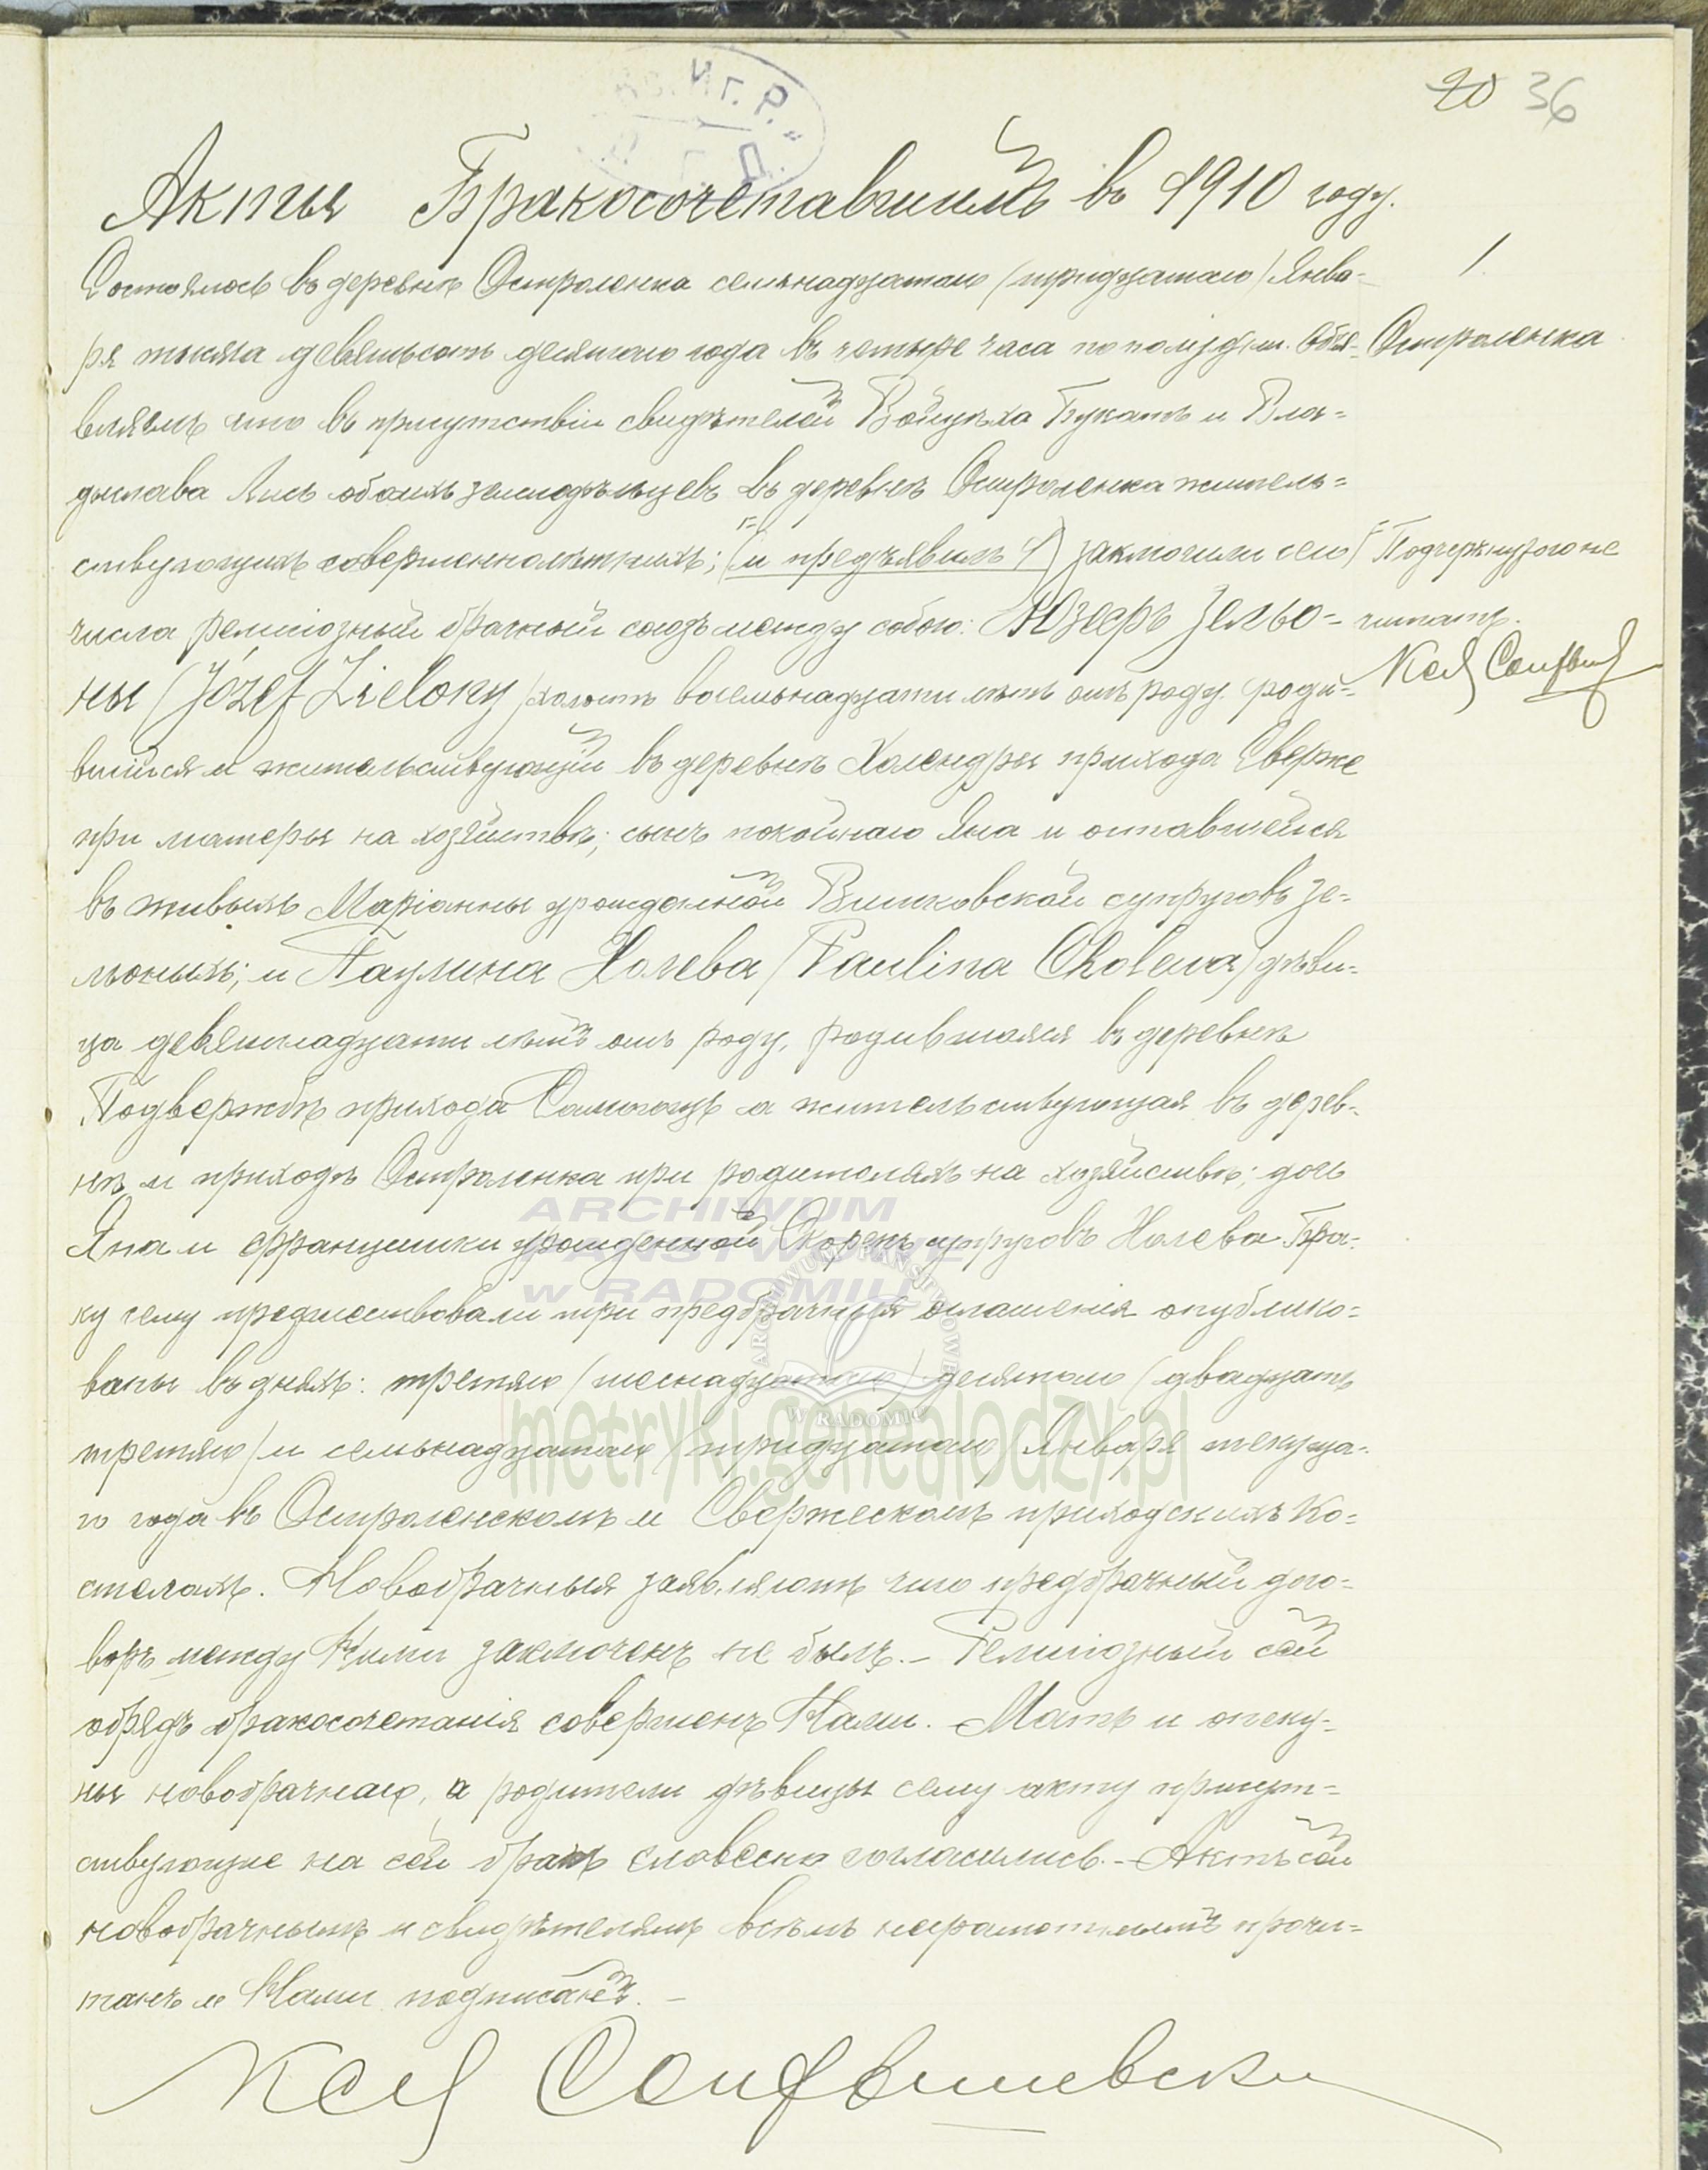 20 36
Акты Бракосочетавшихъ въ 1910 году.
Состоялось въ деревнѣ Остроленка семьнадцатаго (тридцатаго) Янва- 1.
ря тысяча девятьсотъ десятаго года въ четыре часа по полудни. Объя- Остроленка
вляемъ что въ присутствіи свидѣтелей Войцѣха Букатъ и Вла=
дыслава Лисъ обоихъ земледѣльцевъ въ деревнѣ Остроленка житель=
ствующихъ совершеннолѣтнихъ; (и предъявилъ 1) заключили сего Подчеркнутого не
числа религіозный брачный союзъ между собою: Юзефъ Зельо= читать.
ны (Józef Zielony) холостъ восемьнадцати лѣтъ отъ роду роди=
вшійся и жительствующій въ деревнѣ Холендры прихода Сверже
при матеры на хозяйствѣ; сынъ покойнаго Яна и оставшейся
въ живыхъ Маріанны урожденной супруговъ Зе=
льоныхъ; и Паулина Холева (Paulina Cholewa) дѣви=
ца девятнадцати лѣтъ отъ роду, родившаяся въ деревнѣ
прихода а жительствующая въ дерев=
нѣ и приходѣ Остроленка при родителяхъ на хозяйствѣ; дочь
Яна и Францишки урожденной супруговъ Холева. Бра=
ку сему предшествовали три предбрачныя оглашенія опублико=
ваны въ дняхъ: третяго (шеснадцатаго) десятого (двадцать
третяго) и семьнадцатаго (тридцатаго) Января текуща=
го года въ Остроленскомъ и Свержескомъ приходскихъ Ко=
стелахъ. Новобрачныя заявляютъ что предбрачный дого=
воръ между Ними заключенъ не былъ. - Религіозный сей
обрядъ бракосочетанія совершенъ Нами. Мать и опеку=
ны новобрачнаго, а родители дѣвицы сему акту присут=
ствующие на сей бракъ словесно согласились. - Актъ сей
новобрачнымъ и свидѣтелямъ всѣмъ неграмотнымъ прочи=
танъ и Нами подписанъ. -
ARCHIWUM
PAŃSTWOWE
w RADOMIU
metryki.genealodzy.pl